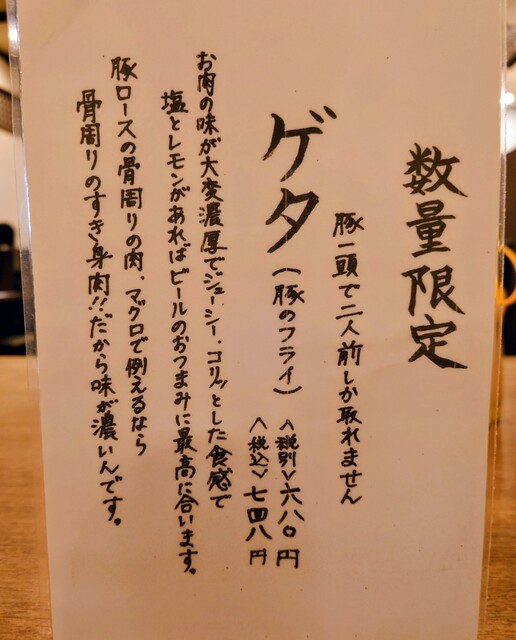 数量限定
豚一頭で二人前しか取れません
ゲタ(豚のフライ)
<税別>六八〇円
<税込>七四八円
お肉の味が大変濃厚でジューシー、コリッとした食感で
塩とレモンがあればビールのおつまみに最高に合います。
豚ロースの骨周りの肉、マグロで例えるなら
骨周りのすき身肉!!だから味が濃いんです。